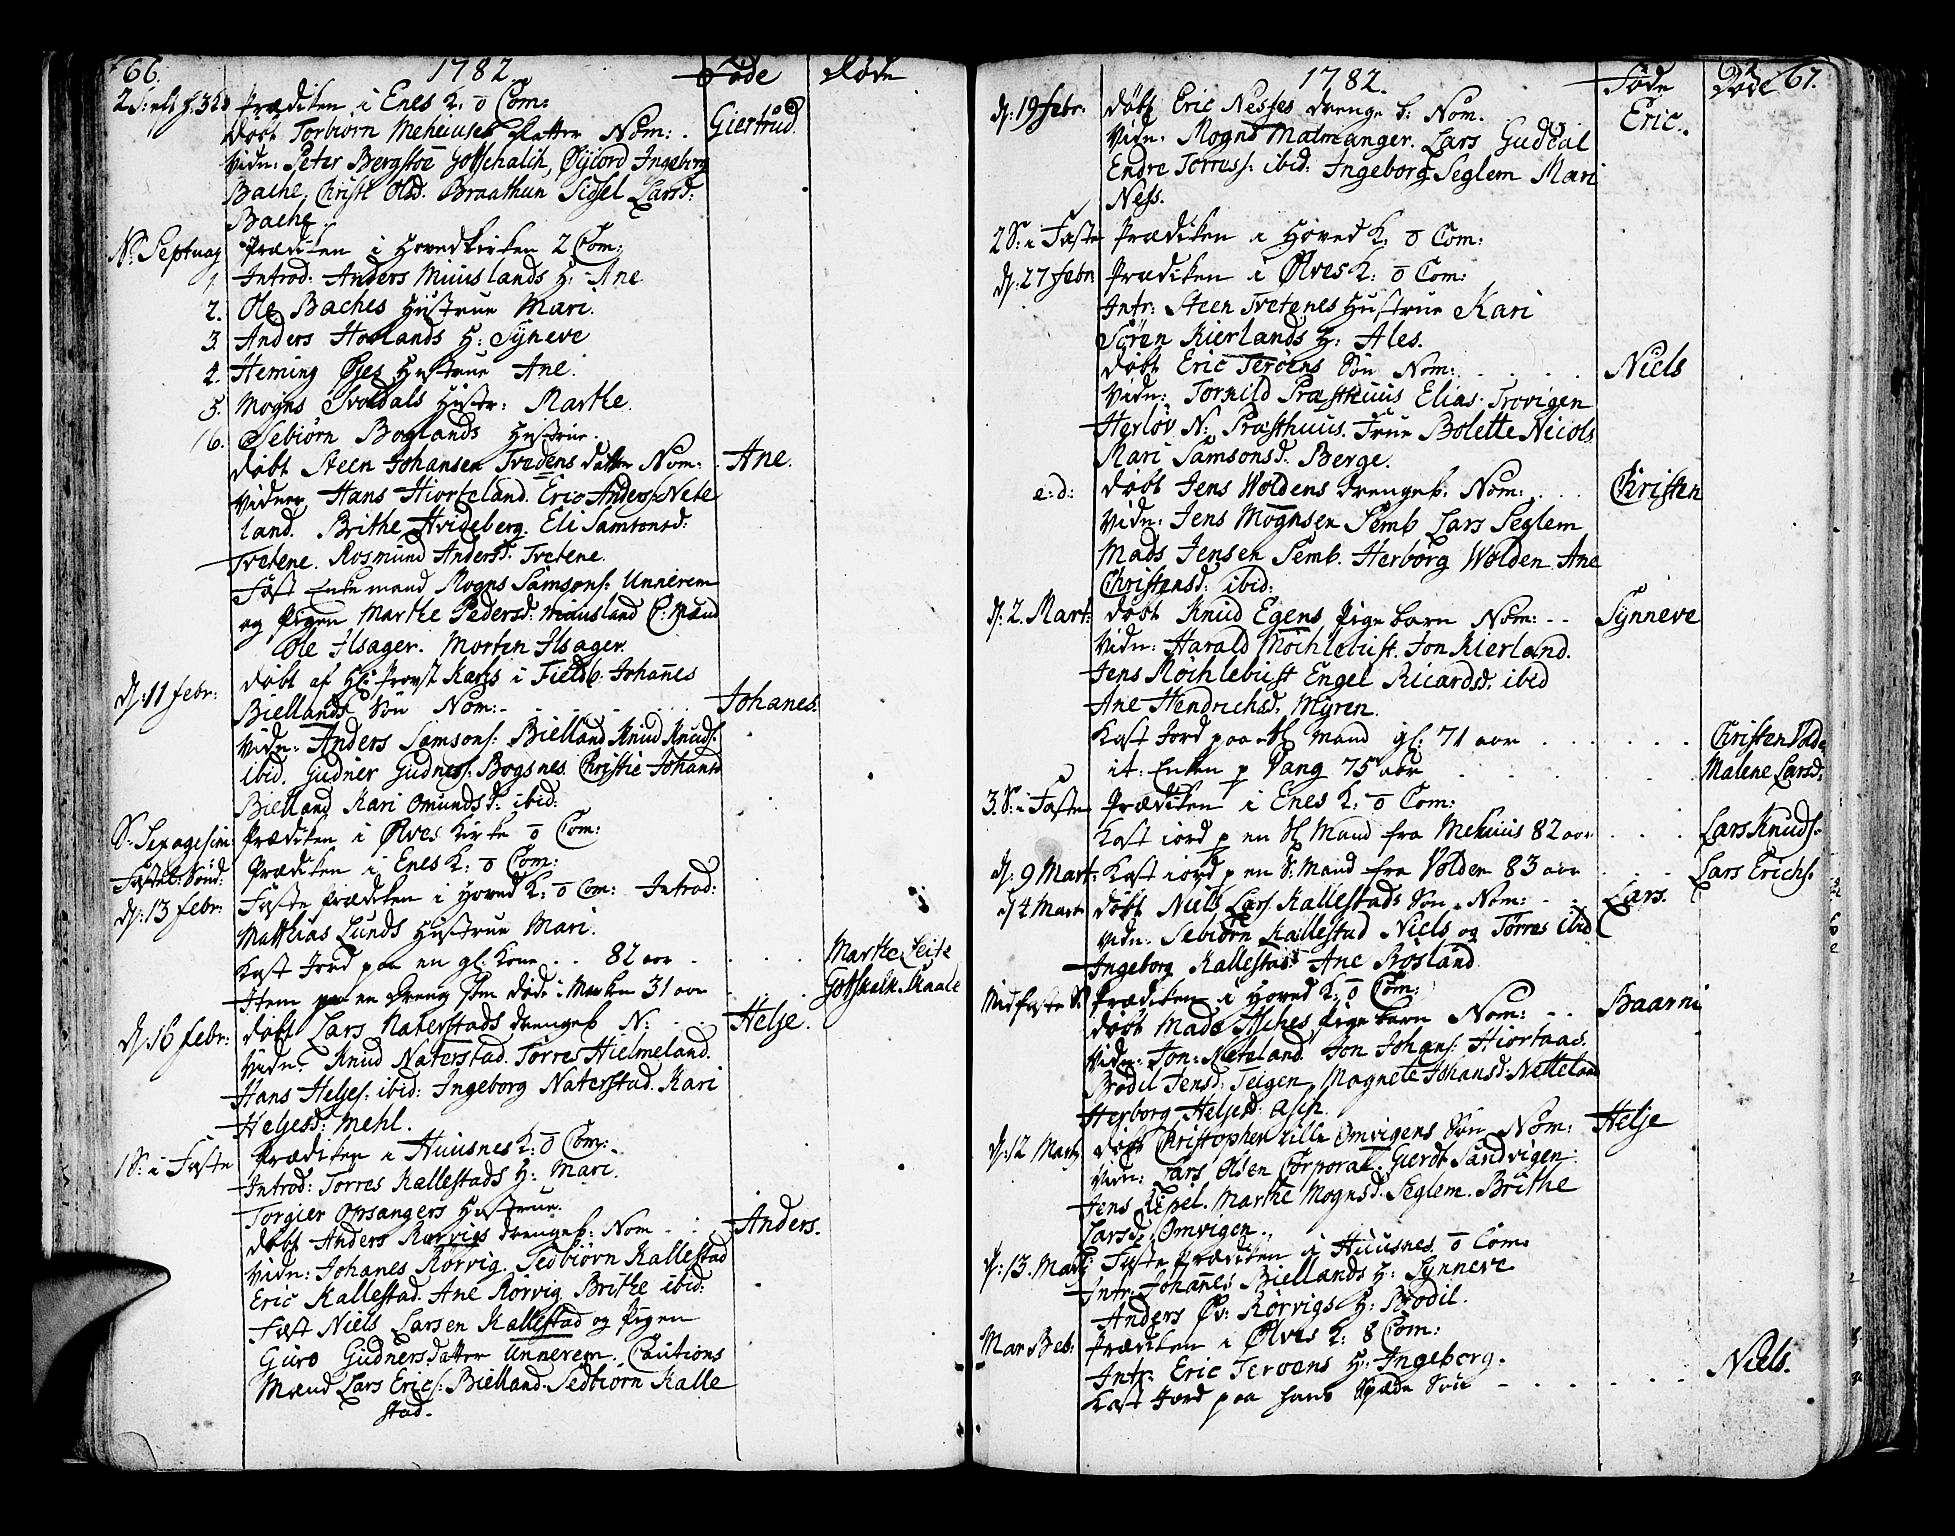 66.
1782.
Føde
Døde
Prædiken i Enes K: o Com:
døbt Torbiørn Mehuuses datter Nom: Giertrud
Vidn: Peter Bergstøe Gotschalch, Ingeborg
Bache, Christi Olsd. Braathun Sidsel Larsd:
Bache.
S: Septuag Prædiken i Hovedkirken 2 Com:
1. Introd: Anders Muuslands H: Ane
2. Ole Baches Hustrue Mari.
3. Anders Hovlands H: Synneve
4. Heming Øyes Hustrue Ane.
5. Mogns Hustr: Marthe.
6. Sebiørn Boglands Hustrue.
døbt Steen Johansen Tvedens datter Nom: Ane.
Vidner Hans Hiorteland. Eric Anders: Nete
land. Brithe Hvideberg. Eli Samsonsd:
Tvetene. Rosmund Andersd. Tvetene.
Fæst Enkemand Mogns Samsons: Unnerem
og Pigen Marthe Pedersd: Muusland C: Mænd
Ole Ilsager. Morten Ilsager.
døbt af Hr: Provst i Fieldb. Johanes
d: 11 febr: Biellands Søn Nom: Johanes.
Vidn: Anders Samsons: Bielland Knud Knuds:
ibid. Gudner Gudnes: Bogsnes. Christie Johans
Bielland Kari Omundsd: ibid:
S: Sexagesim: Prædiken i Ølves Kirke o Com:
Fastel: Sønd: Prædiken i Enes K: o Com:
d: 13 febr: Faste Prædiken i Hoved K: o Com: Introd:
Matthias Lunds Hustrue Mari.
Kast Jord paa en gl: Kone 82 aar Marthe Leite
Item paa en Dreng som døde i Marken 31 aar Gotskalk Maale
d: 16 febr: døbt Lars Naterstads drengeb N: Helje.
Vidn: Knud Naterstad. Torres Hielmeland.
Hans Heljes: ibid: Ingeborg Naterstad. Kari
Heljesd: Mehl.
1 S: i Faste Prædiken i Huusnes K: o Com:
Introd: Torres Kallestads H: Mari.
Torgier Opsangers Hustrue.
døbt Anders Rørvigs drengeb: Nom Anders.
Vidn: Johanes Rørvig. Sedbiørn Kallestad
Eric Kallestad. Ane Rørvig Brithe ibid:
Fæst Niels Larsen Kallestad og Pigen
Guro Gudnersdatter Unnerem. Cautions
Mænd Lars Erics: Bielland. Sedbiørn Kalle
stad.
1782.
Føde
Døde
67.
d: 19 febr: døbt Eric Nesses drenge b: Nom. Eric.
Vidn: Mogns Malmanger. Lars Guddal
Endre Torress: ibid: Ingeborg Seglem Mari
Ness.
2 S: i Faste Prædiken i Hoved K: o Com:
d: 27 febr Prædiken i Ølves K: o Com:
Intr: Steen Tvetenes Hustrue Kari
Søren Kierlands H: Ales.
døbt Eric Terøens Søn Nom: Niels
Vidn: Tornild Præsthuus Elias Trovigen
Herlov N: Præsthuus. Frue Bolette Nicols
Mari Samsonsd. Berge.
e: d: døbt Jens Woldens drengeb: Nom: Christen
Vidn: Jens Mognsen Semb Lars Seglem
Mads Jensen Semb. Herborg Wolden Ane
Christensd: ibid:
d: 2. Mart: døbt Knud Egens Pige barn Nom: Synneve
Vidn: Harald Møchlebust. Jon Kierland.
Jens Møichlebust Engel Ricardsd: ibid
Ane Hendrichsd: Myren.
Kast Jord paa Mand gl: 71 aar Christen Volde
it: Enken p Vang 75 aar Malene Larsd:
3. S: i Faste Prædiken i Enes K: o Com:
Kast iord p en Mand fra Mehuus 82 aar Lars Knuds:
d: 9 Mart: Kast iord p en Mand fra Volden 83 aar Lars Erichs:
døbt Niels Lars: Kallestads Søn Nom: Lars.
Vidn. Sebiørn Kallestad Niels og Torres ibid
Ingeborg Kallestad Ane Røsland
Midfaste S: Prædiken i Hoved K: o Com:
døbt Mads Pige barn Nom: Baarni
Vidn: Jon Neteland Jon Johans: Hiortaas.
Brodil Jensd: Teigen, Magnete Johansd. Netteland
Herborg Heljesd:
d: 12 Marti døbt Christopher Lille Omvigens Søn Nom: Helje
Vidn: Lars Olsen Corporal. Gierdt Sandvigen
Jens Marthe Mognsd. Seglem. Brithe
Larsd: Omvigen.
d: 13. Marti Faste Prædiken i Huusnes o Com:
Intr: Johanes Biellands H: Synneve
Anders Øv: Rørvigs H: Brodil.
Mar: Beb: Prædiken i Ølves K: 8 Com:
Intr: Eric Terøens H: Ingeborg.
Kast Jord paa hans Spæde Søn Niels.